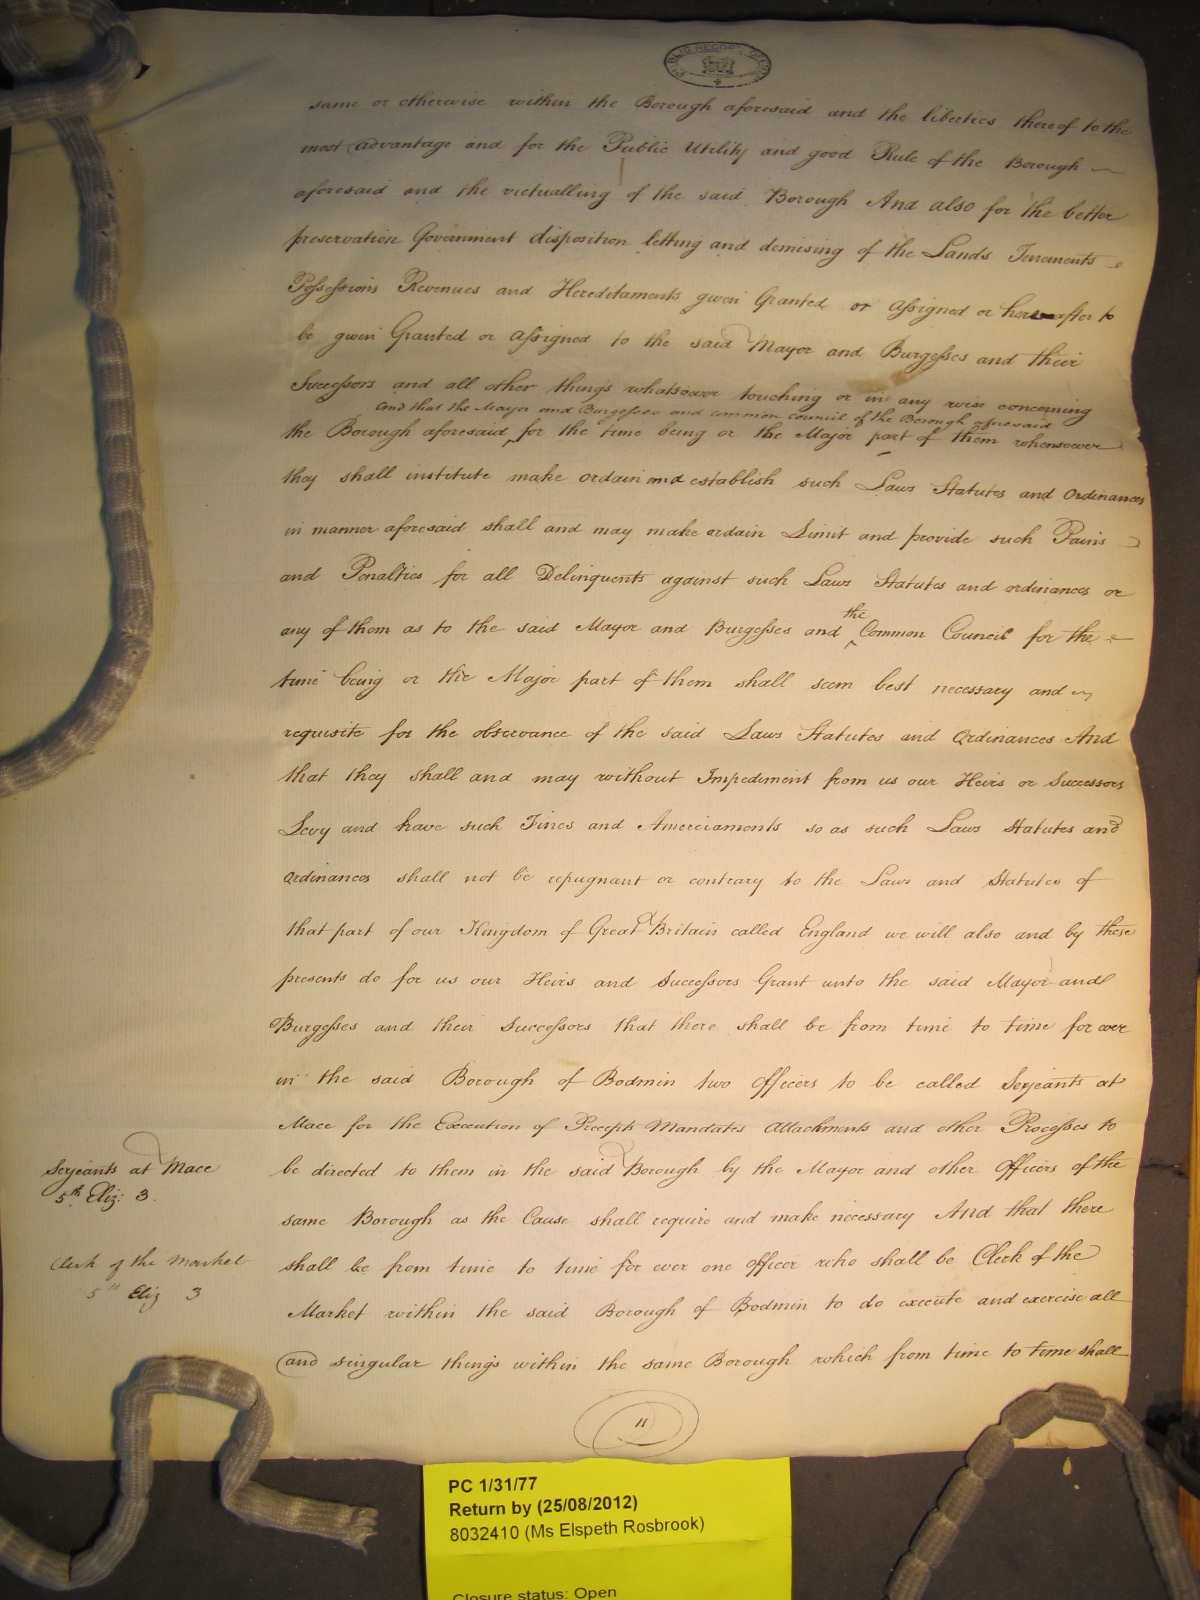 PUBLIC RECORD OFFICE
same or otherwise within the Borough aforesaid and the liberties thereof to the
most advantage and for the Public Utility and good Rule of the Borough
aforesaid and the victualling of the said Borough And also for the better
preservation Government disposition letting and demising of the Lands Tenements
Possessions Revenues and Hereditaments given Granted or assigned or hereafter to
be given Granted or assigned to the said Mayor and Burgesses and their
Successors and all other things whatsoever touching or in any wise concerning
and that the Mayor and Burgesses and common council of the Borough aforesaid
the Borough aforesaid for the time being or the Major part of them whensoever
they shall institute make ordain and establish such Laws Statutes and Ordinances
in manner aforesaid shall and may make ordain Limit and provide such Pains
and Penalties for all Delinquents against such Laws Statutes and ordinances or
any of them as to the said Mayor and Burgesses and the Common Council for the
time being or the Major part of them shall seem best necessary and
requisite for the observance of the said Laws Statutes and Ordinances And
that they shall and may without Impediment from us our Heirs or Successors
Levy and have such Fines and Amerciaments so as such Laws Statutes and
Ordinances shall not be repugnant or contrary to the Laws and Statutes of
that part of our Kingdom of Great Britain called England we will also and by these
presents do for us our Heirs and Successors Grant unto the said Mayor and
Burgesses and their Successors that there shall be from time to time for ever
in the said Borough of Bodmin two officers to be called Serjeants at
Mace for the Execution of Precepts Mandates Attachments and other Processes to
Serjeants at Mace
5th Eliz: 3.
be directed to them in the said Borough by the Mayor and other Officers of the
same Borough as the Cause shall require and make necessary And that there
Clerk of the Market
5th Eliz 3
shall be from time to time for ever one officer who shall be Clerk of the
Market within the said Borough of Bodmin to do execute and exercise all
and singular things within the same Borough which from time to time shall
11
PC 1/31/77
Return by (25/08/2012)
8032410 (Ms Elspeth Rosbrook)
Closure status: Open